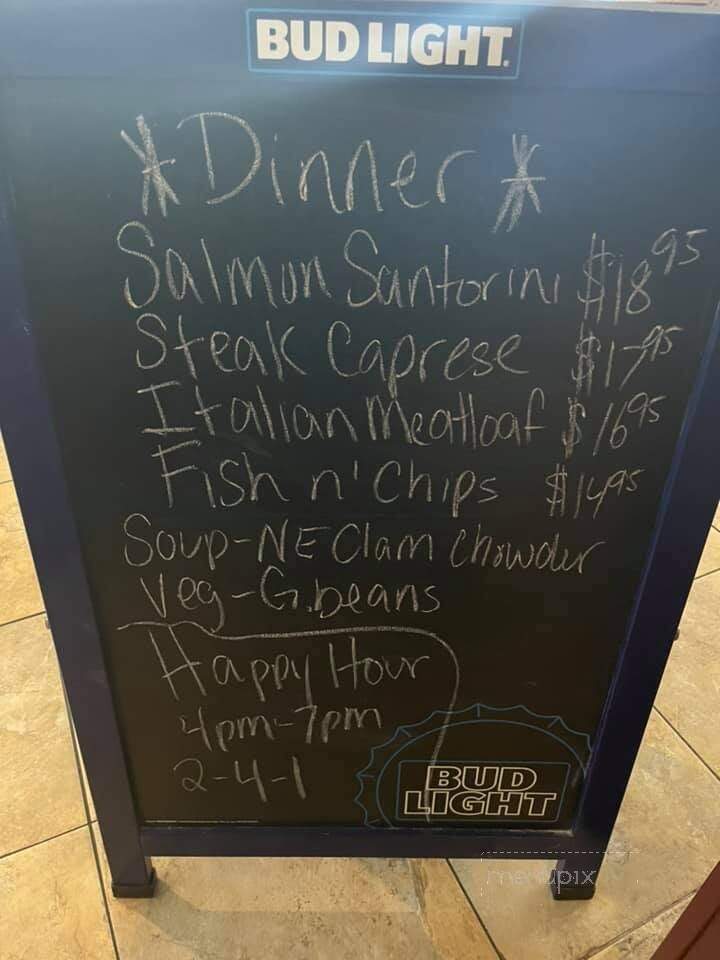 BUD LIGHT.
*Dinner*
Salmon Santorini $18.95
Steak Caprese $17.95
Italian Meatloaf $16.95
Fish n' Chips $14.95
Soup-NE Clam Chowder
Veg-G.beans
Happy Hour
4pm-7pm
2-4-1
BUD
LIGHT
menupix